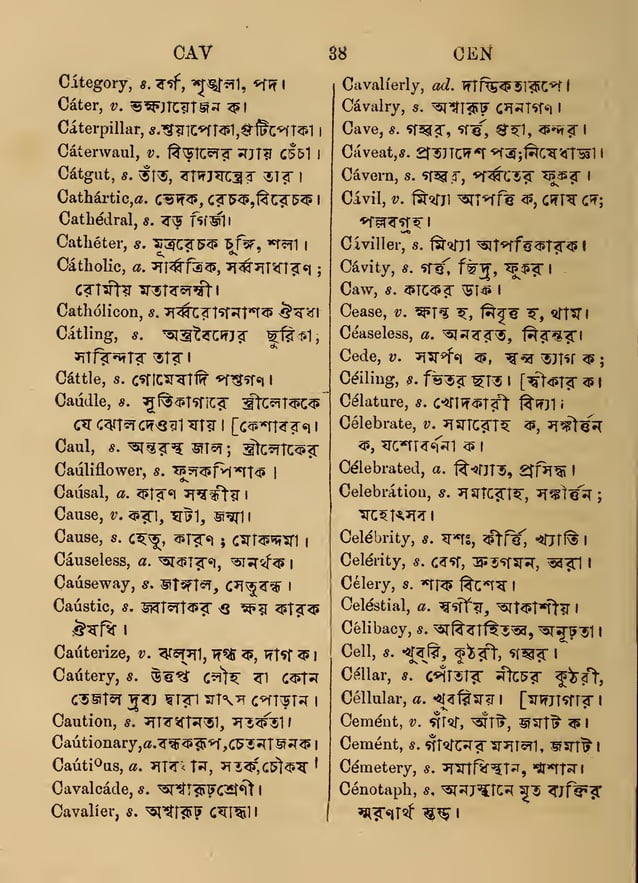 CAV 38 CEN
Cítegory, s. বর্গ, শৃঙ্খলা, পদ।
Cáter, v. ভক্ষ্যায়োজন ক।
Cáterpillar, s. শুয়াপোকা, গুটিপোকা।
Cáterwaul, v. বিড়ালের ন্যায় চেঁচা।
Cátgut, s. তাঁত, বাদ্যযন্ত্রের তার।
Cathártic, a. ভেদক, রেচক, বিরেচক।
Cathédral, s. বড় গির্জা।
Cathéter, s. মূত্ররেচক চুঙ্গি, শলা।
Cátholic, a. সার্ব্বত্রিক, সর্ব্বসাধারণ;
রোমীয় মতাবলম্বী।
Cathólicon, s. সর্ব্বরোগনাশক ঔষধ।
Cátling, s. অস্ত্রবৈদ্যের ছুরিকা;
সারিন্দার তার।
Cáttle, s. গোমেষাদি পশুগণ।
Caúdle, s. সূতিকাগারে স্ত্রীলোককে
যে ঝোল দেওয়া যায়। [কেশাবরণ।
Caul, s. অন্তরস্থ জাল; স্ত্রীলোকের
Caúliflower, s. ফুলকপিশাক।
Caúsal, a. কারণ সম্বন্ধীয়।
Cause, v. করা, ঘটা, জন্মা।
Cause, s. হেতু, কারণ; মোকদ্দমা।
Cáuseless, a. অকারণ, অনর্থক।
Caúseway, s. জাঙ্গাল, সেতুবন্ধ।
Caústic, s. জ্বালাকর ও ক্ষয় কারক
ঔষধি।
Caúterize, v. ঝল্সা, দগ্ধ ক, দাগ ক।
Caútery, s. উত্তপ্ত লৌহ বা কোন
তেজাল দ্রব্য দ্বারা মাংস পোড়ান।
Caution, s. সাবধানতা, সতর্কতা।
Caútionary, a. বন্ধকরূপ, চেতনাজনক।
Caútious, a. সাবধান, সতর্ক, চৌকষ।
Cavalcáde, s. অশ্বারূঢ়শ্রেণী।
Cavalíer, s. অশ্বারূঢ় যোদ্ধা।
Cavalíerly, ad. দাম্ভিকতারূপে।
Cávalry, s. অশ্বারূঢ় সেনাগণ।
Cave, s. গহ্বর, গর্ত্ত, গুহা, কন্দর।
Cáveat, s. প্রত্যাদেশ পত্র; নিষেধাজ্ঞা।
Cávern, s. গহ্বর, পর্ব্বতের ফুকর।
Cávil, v. মিথ্যা আপত্তি ক, দোষ দে;
পল্লবগৃহ।
Cíviller, s. মিথ্যা আপত্তিকারক।
Cávity, s. গর্ত্ত, ছিদ্র, ফুকর।
Caw, s. কাকের ডাক।
Cease, v. ক্ষান্ত হ, নিবৃত্ত হ, থাম।
Céaseless, a. অনবরত, নিরন্তর।
Cede, v. সমর্পণ ক, স্বত্ব ত্যাগ ক;
Céiling, s. ভিতর ছাত। [স্বীকার ক।
Célature, s. খোদকারী বিদ্যা।
Célebrate, v. সমারোহ ক, সঙ্কীর্ত্তন
ক, যশোবর্ণনা ক।
Célebrated, a. বিখ্যাত, প্রসিদ্ধ।
Celebrátion, s. সমারোহ, সঙ্কীর্ত্তন;
মহোৎসব।
Celébrity, s. যশঃ, কীর্ত্তি, খ্যাতি।
Celérity, s. বেগ, দ্রুতগমন, ত্বরা।
Célery, s. শাক বিশেষ।
Celéstial, a. স্বর্গীয়, আকাশীয়।
Célibacy, s. অবিবাহিতত্ব, অনূঢ়তা।
Cell, s. খুব্‌রি, কুঠরী, গহ্বর।
Céllar, s. পোঁতার নীচের কুঠরী,
Céllular, a. খুবরিময়। [মদ্যাগার।
Cemént, v. গাঁথ, আঁট, জমাট ক।
Cemént, s. গাঁথনের মসালা, জমাট।
Cémetery, s. সমাধিস্থান, শ্মশান।
Cénotaph, s. অন্যস্থানে মৃত ব্যক্তির
স্মরণার্থ স্তম্ভ।